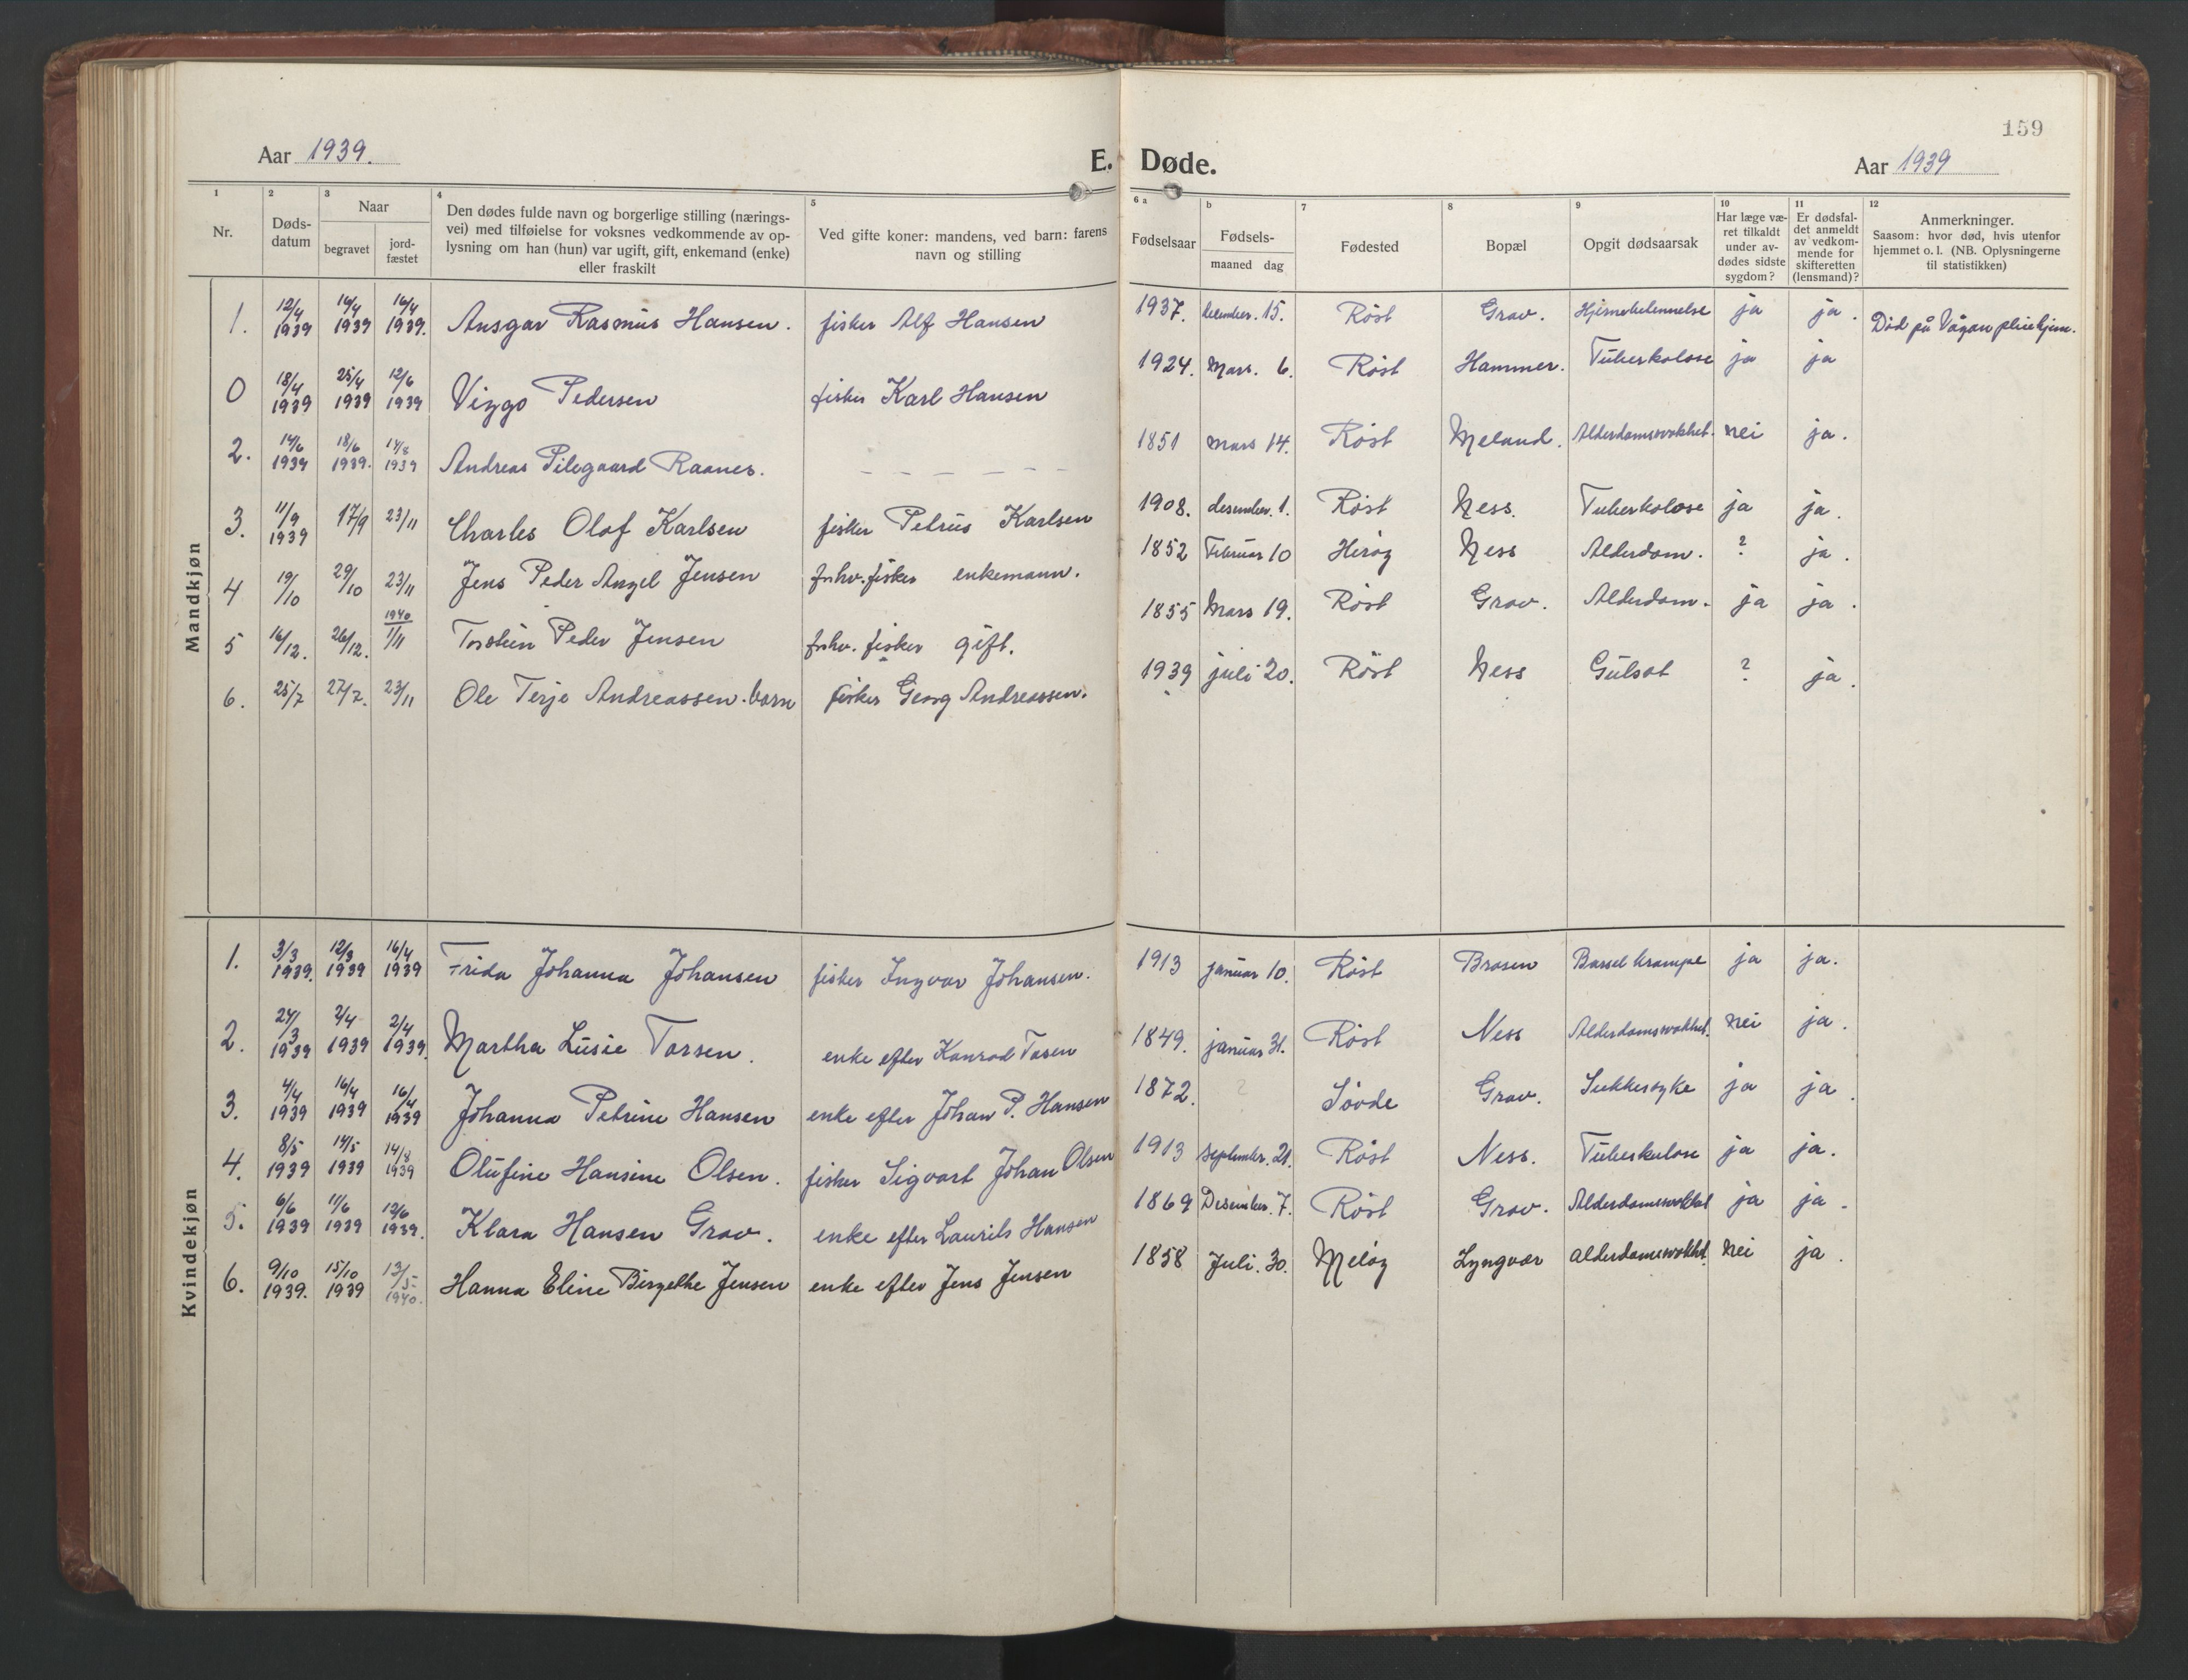 159
Aar 1939.
E. Døde.
Aar 1939
1 Nr.
2 Døds-datum
3 Naar begravet jord-fæstet
4 Den dødes fulde navn og borgerlige stilling (nærings-vei) med tilføielse for voksnes vedkommende av op-lysning om han (hun) var ugift, gift, enkemand (enke) eller fraskilt
5 Ved gifte koner: mandens, ved barn: farens navn og stilling
6 a Fødselsaar
b Fødsels- maaned dag
7 Fødested
8 Bopæl
9 Opgit dødsaarsak
10 Har læge væ-ret tilkaldt under av-dødes sidste sygdom?
11 Er dødsfal-det anmeldt av vedkom-mende for skifteretten (lensmand)?
12 Anmerkninger. Saasom: hvor død, hvis utenfor hjemmet o. l. (NB. Oplysningerne til statistikken)
Mandkjøn
1. 12/4 1939 16/4 1939 16/4 1939. Ansgar Rasmus Hansen. fisker Alf Hansen 1937. desember. 15. Röst Grav. Hjernebetennelse ja ja.
0 18/4 1939 25/4 1939 12/6 1939 Viggo Pedersen fisker Karl Hansen 1924. Mars. 6. Röst Hammer. Tuberkolose ja ja Död på Vågan pleiehjem.
2. 14/6 1939 18/6 1939. 14/8 1939 Andreas Pilegaard Raanes. – – – – – – 1851 Mars 14. Röst Meland. Alderdomsvakhet. nei ja.
3. 11/9 1939 17/9 23/11 Charles Olaf Karlsen fisker Petrus Karlsen 1908. desember. 1. Röst Ness. Tuberkolose ja ja.
4 19/10 29/10 23/11 Jens Peder Angel Jensen frhv. fisker enkemann. 1852 Februar 10 Heröy Ness Alderdom. ? ja.
5 16/12. 26/12. 1940 1/11 Torstein Peder Jensen frhv. fisker gift. 1855 Mars 19. Röst Grav. Alderdom. ja ja.
6. 25/7 27/7. 23/11 Ole Terje Andreassen. barn fisker Georg Andreassen. 1939 juli 20. Röst Ness Gulsot ? ja.
Kvindekjøn
1. 3/3 1939. 12/3 1939 16/4 1939 Frida Johanna Johansen fisker Ingvar Johansen. 1913 januar 10. Röst Brasen Barsel krampe ja ja.
2. 24/3 1939 2/4 1939 2/4 1939. Martha Lusie Tarsen. enke efter Konrad Tasen 1849. januar 31. Röst Ness Alderdomsvakhet. nei ja.
3. 4/4 1939 16/4 1939 16/4 1939 Johanna Petrine Hansen enke efter Johan P. Hansen 1872. ? Grav. Sukkersyke ja ja.
4. 8/5 1939 14/5 1939 14/8 1939 Olufine Hansine Olsen. fisker Sigvart Johan Olsen 1913 September. 21. Röst Ness. Tuberkulose ja ja.
5. 6/6 1939 11/6 1939 12/6 1939. Klara Hansen Grav. enke efter Laurits Hansen 1869 Desember. 7. Röst Grav. Alderdomsvakhet ja ja.
6. 9/10 1939. 15/10 1939 13/5. 1940. Hanna Eline Birgethe Jensen enke efter Jens Jensen 1858 Juli. 30. Melöy Lyngvær alderdomsvakhet. nei ja.